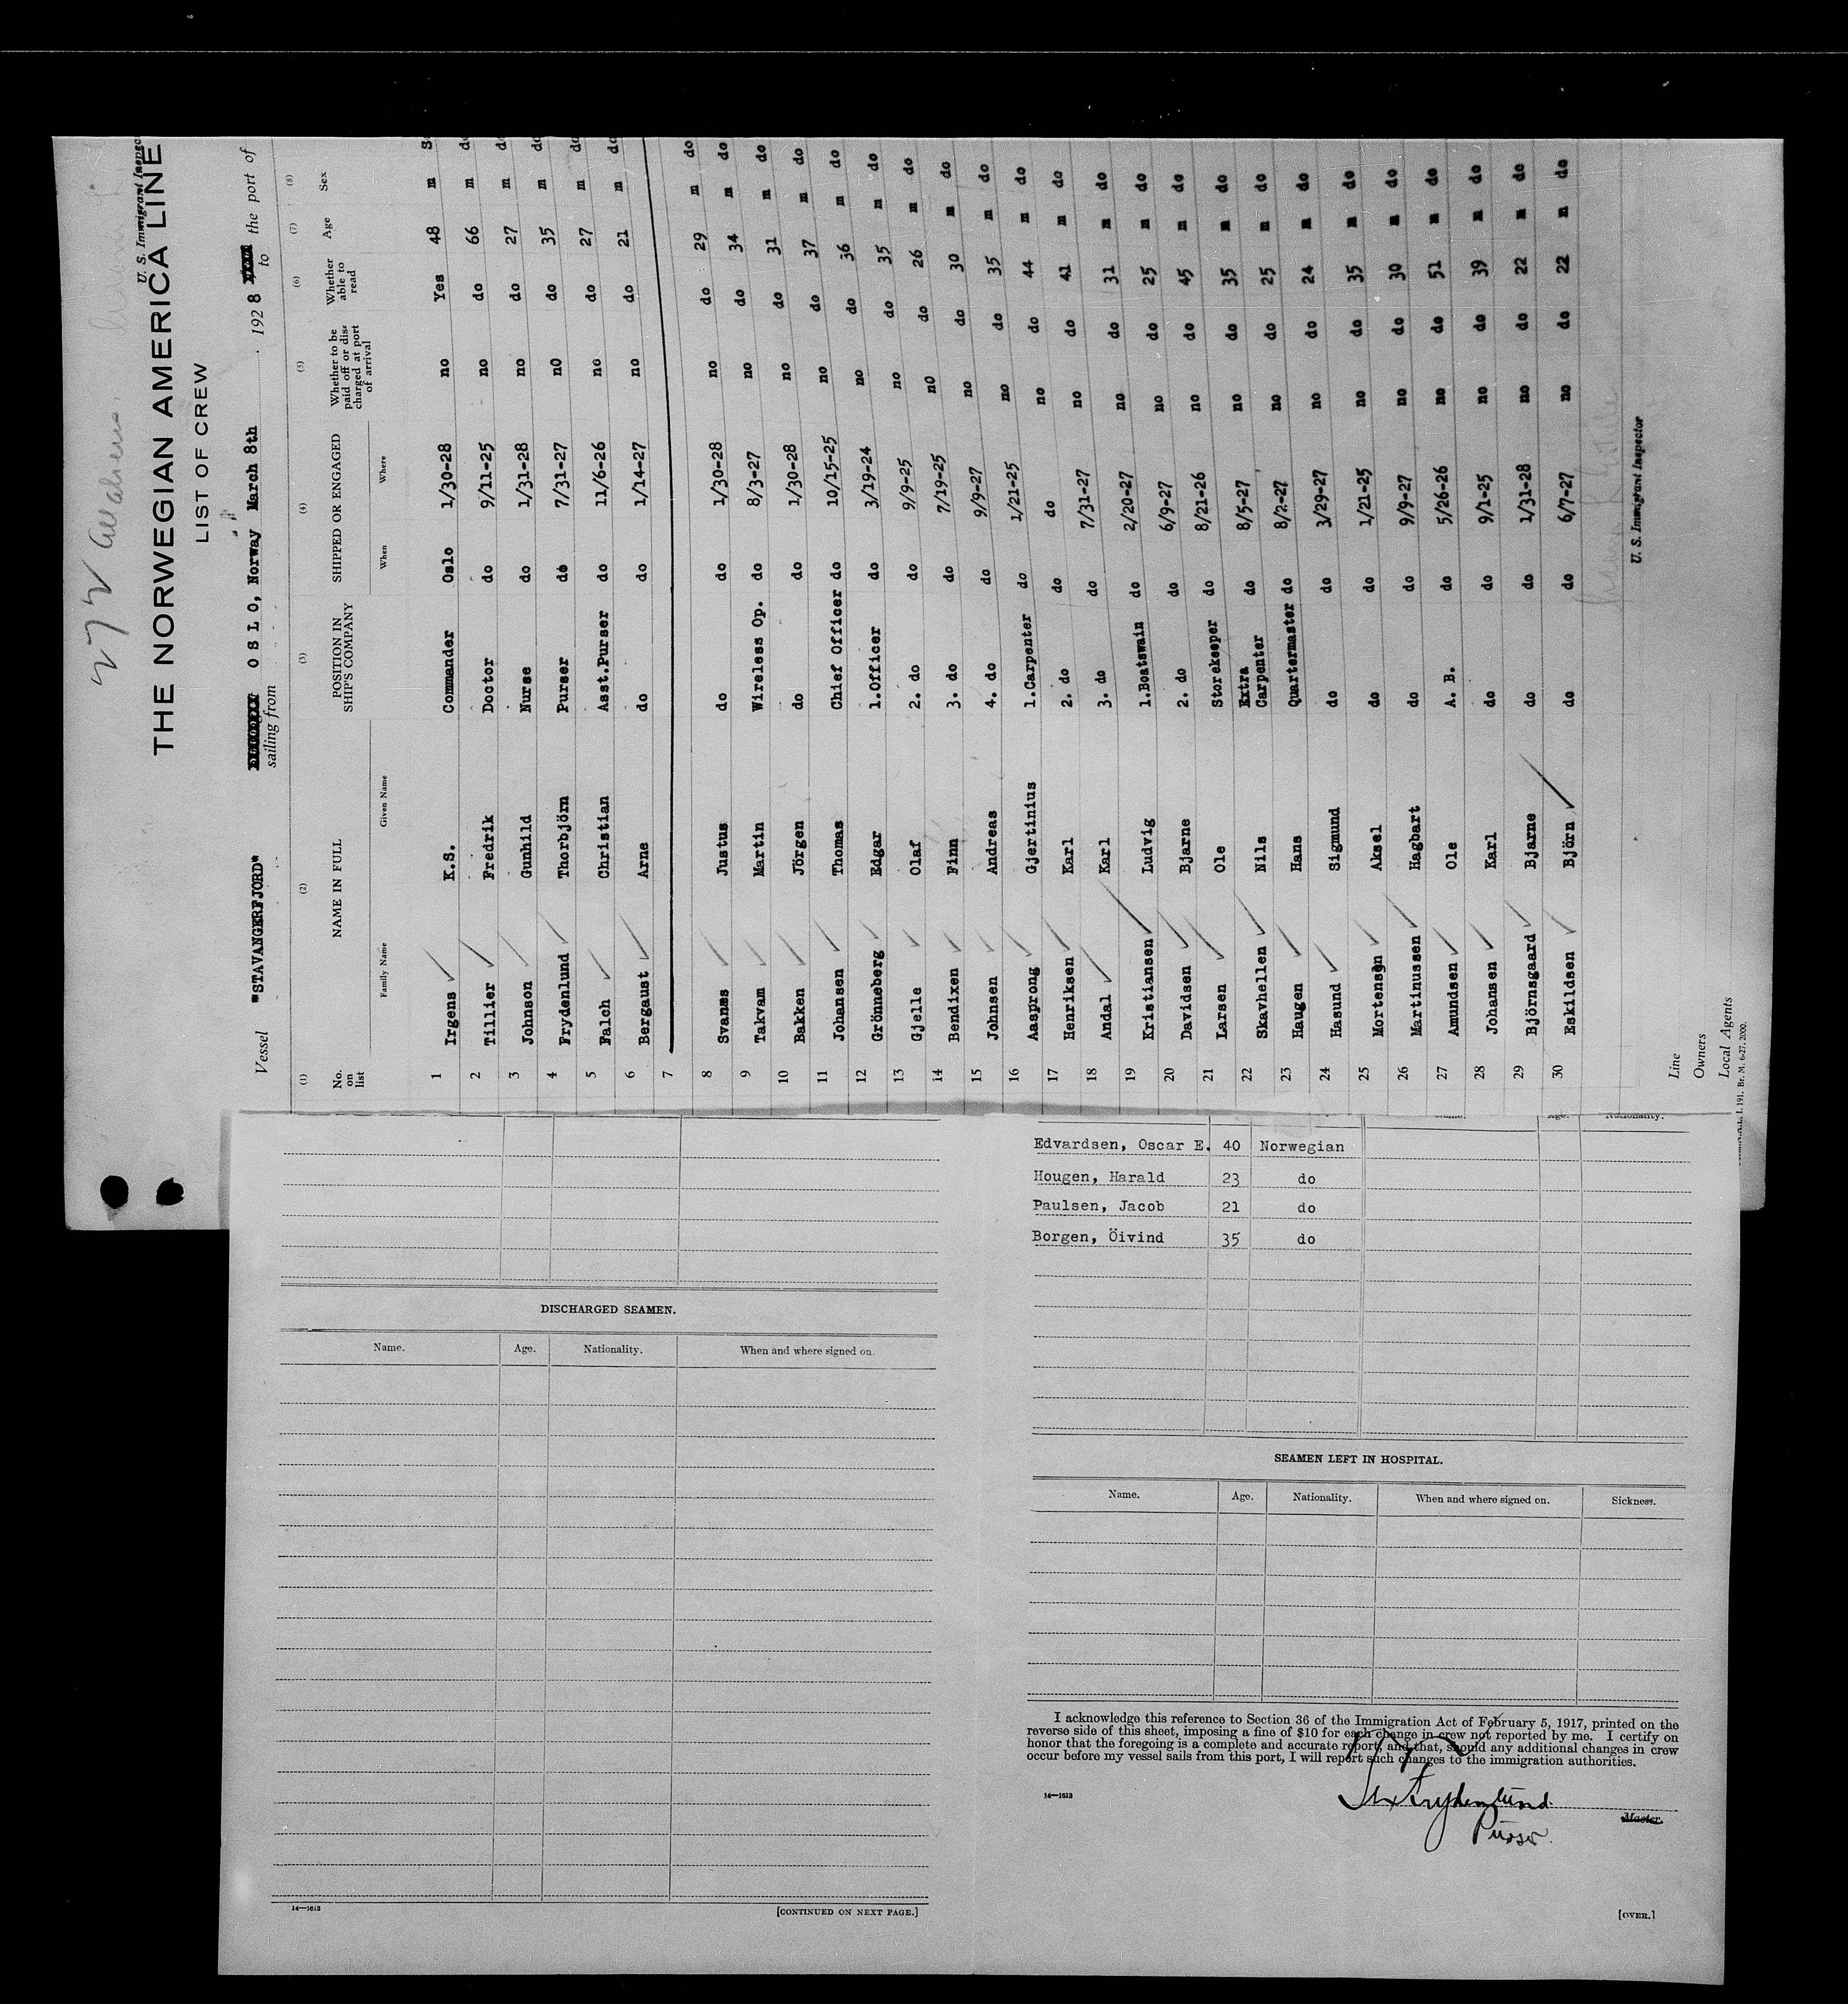 THE NORWEGIAN AMERICA LINE
U. S. Immigrant Inspec
LIST OF CREW
Vessel "STAVANGERFJORD" sailing from O S L O, Norway March 8th 1928 to the port of
(1) (2) (3) (4) (5) (6) (7) (8)
No. on list NAME IN FULL POSITION IN SHIP'S COMPANY SHIPPED OR ENGAGED Whether to be paid off or discharged at port of arrival Whether able to read Age Sex
Family Name Given Name When Where
1 Irgens K.S. Commander Oslo 1/30-28 no Yes 48 m
2 Tillier Fredrik Doctor do 9/11-25 no do 66 m do
3 Johnson Gunhild Nurse do 1/31-28 no do 27 m do
4 Frydenlund Thorbjörn Purser do 7/31-27 no do 35 m do
5 Falch Christian Asst.Purser do 11/6-26 no do 27 m do
6 Bergaust Arne do do 1/14-27 no do 21 m do
7
8 Svanæs Justus do do 1/30-28 no do 29 m do
9 Takvam Martin Wireless Op. do 8/3-27 no do 34 m do
10 Bakken Jörgen do do 1/30-28 no do 31 m do
11 Johansen Thomas Chief Officer do 10/15-25 no do 37 m do
12 Grönneberg Edgar 1.Officer do 3/19-24 no do 36 m do
13 Gjelle Olaf 2. do do 9/9-25 no do 35 m do
14 Bendixen Finn 3. do do 7/19-25 no do 26 m do
15 Johnsen Andreas 4. do do 9/9-27 no do 30 m do
16 Aasprong Gjertinius 1.Carpenter do 1/21-25 no do 35 m do
17 Henriksen Karl 2. do do do no do 44 m do
18 Andal Karl 3. do do 7/31-27 no do 41 m do
19 Kristiansen Ludvig 1.Boatswain do 2/20-27 no do 31 m do
20 Davidsen Bjarne 2. do do 6/9-27 no do 25 m do
21 Larsen Ole Storekeeper do 8/21-26 no do 45 m do
22 Skavhellen Nils Extra Carpenter do 8/5-27 no do 35 m do
23 Haugen Hans Quartermaster do 8/2-27 no do 25 m do
24 Hasund Sigmund do do 3/29-27 no do 24 m do
25 Mortensen Aksel do do 1/21-25 no do 35 m do
26 Martinussen Hagbart do do 9/9-27 no do 30 m do
27 Amundsen Ole A. B. do 5/26-26 no do 51 m do
28 Johansen Karl do do 9/1-25 no do 39 m do
29 Björnsgaard Bjarne do do 1/31-28 no do 22 m do
30 Eskildsen Björn do do 6/7-27 no do 22 m do
U. S. Immigrant Inspector
Line
Owners
Local Agents
Edvardsen, Oscar E. 40 Norwegian
Hougen, Harald 23 do
Paulsen, Jacob 21 do
Borgen, Öivind 35 do
DISCHARGED SEAMEN.
Name. Age. Nationality. When and where signed on.
14—1613
[CONTINUED ON NEXT PAGE.]
SEAMEN LEFT IN HOSPITAL.
Name. Age. Nationality. When and where signed on. Sickness.
I acknowledge this reference to Section 36 of the Immigration Act of February 5, 1917, printed on the
reverse side of this sheet, imposing a fine of $10 for each change in crew not reported by me. I certify on
honor that the foregoing is a complete and accurate report, and that, should any additional changes in crew
occur before my vessel sails from this port, I will report such changes to the immigration authorities.
14—1613
Frydenlund
Master.
Purser.
[OVER.]